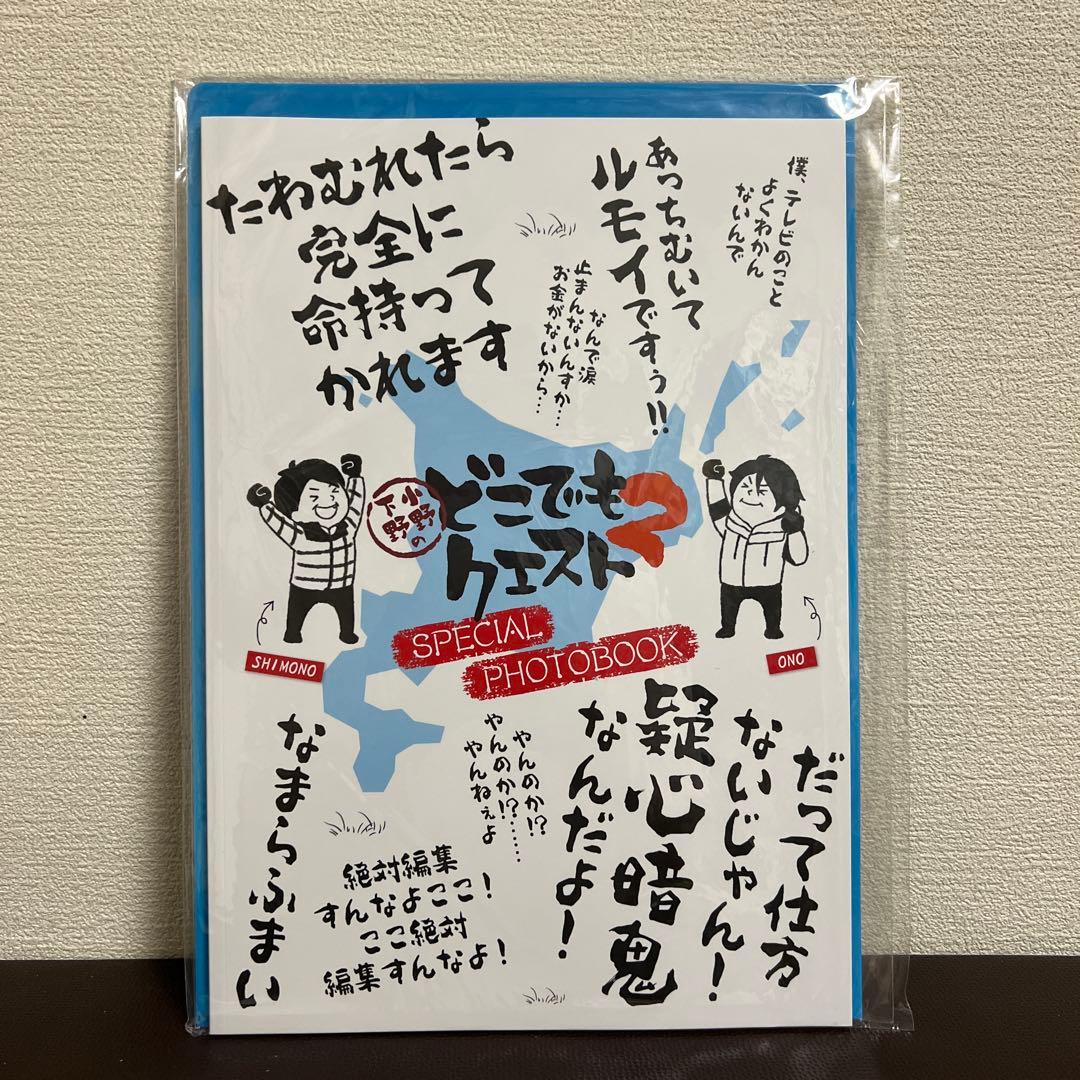 たわむれたら
完全に
命持って
かれます
あっちむいて
ルモイですぅ!!
僕、テレビのこと
よくわかん
ないんで
なんで涙
止まんないんすか…
お金がないから…
小野
下野の
どこでも
クエスト2
SPECIAL
PHOTOBOOK
SHIMONO
ONO
なまらふまい
やんのか!?
やんのか!?……
やんねぇよ
だって仕方
ないじゃん!
疑心暗鬼
なんだよ!
絶対編集
すんなよここ!
ここ絶対
編集すんなよ!